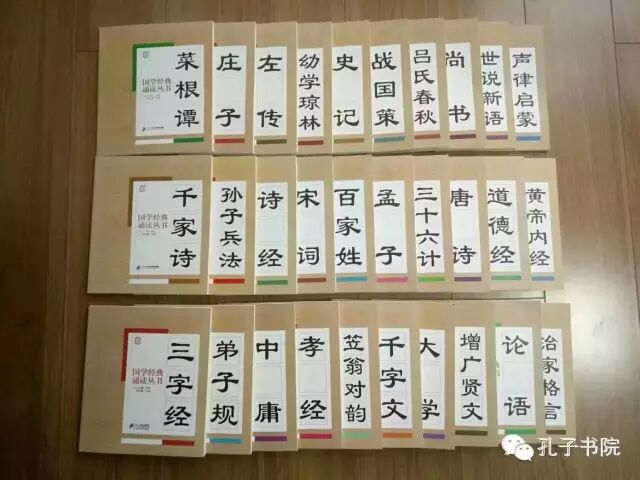 国学经典
诵读丛书
菜根谭
庄子
左传
幼学琼林
史记
战国策
吕氏春秋
尚书
世说新语
声律启蒙
国学经典
诵读丛书
千家诗
孙子兵法
诗经
宋词
百家姓
孟子
三十六计
唐诗
道德经
黄帝内经
国学经典
诵读丛书
三字经
弟子规
中庸
孝经
笠翁对韵
千字文
大学
增广贤文
论语
治家格言
孔子书院